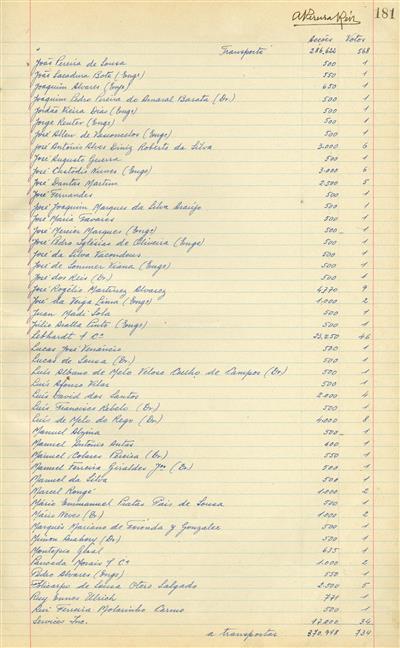 181
Acções Votos
" Transporte 286,622 568
João Pereira de Sousa 500 1
João Sacadura Bote (Engº) 550 1
Joaquim Alvares (Engº) 650 1
Joaquim Pedro Pereira do Amaral Barata (Dr.) 500 1
Jordão Vieira Dias (Engº) 500 1
Jorge Reuter (Engº) 500 1
José Allen de Vasconcelos (Engº) 500 1
José António Alves Diniz Roberto da Silva 3.000 6
José Augusto Guerra 500 1
José Custódio Nunes (Engº) 3.000 6
José Dantas Martins 2.500 5
José Fernandes 500 1
José Joaquim Marques da Silva Araújo 500 1
José Maria Tavares 500 1
José Mercier Marques (Engº) 500 1
José Pedro Iglésias de Oliveira (Engº) 500 1
José da Silva 500 1
José de Sommer Viana (Engº) 500 1
José dos Reis (Dr.) 500 1
José Rogélio Martinez Alvarez 4.770 9
José da Veiga Lima (Engº) 1.000 2
Juan 500 1
Júlio Aralla Pinto (Engº) 500 1
23,250 46
Lucas José Venâncio 500 1
Lucas de Sousa (Dr.) 500 1
Luís Albano de Melo Veloso Coelho de Campos (Dr.) 500 1
Luís Afonso Vilar 500 1
Luís David dos Santos 2.000 4
Luís Francisco Rebelo (Dr.) 500 1
Luís de Melo do Rego (Dr.) 4.000 8
Manuel 500 1
Manuel António Antas 600 1
Manuel Colares Pereira (Dr.) 550 1
Manuel Ferreira Giraldes Jor (Dr.) 500 1
Manuel da Silva 500 1
Marcel Rongé 1.000 2
Mário Emmanuel Pratas Pais de Sousa 500 1
Mário Neves (Dr.) 1.000 2
Marquês Mariano de Foronda y Gonzalez 500 1
Anahory (Dr.) 500 1
Montepio Geral 635 1
Morais & Cª 1.000 2
Pedro Alvares (Engº) 550 1
Policarpo de Sousa Otero Salgado 2.500 5
Ruy Ennes Ulrich 771 1
Rui Ferreira Molarinho Carmo 500 1
Services Inc. 17,000 34
a transportar 370,948 734